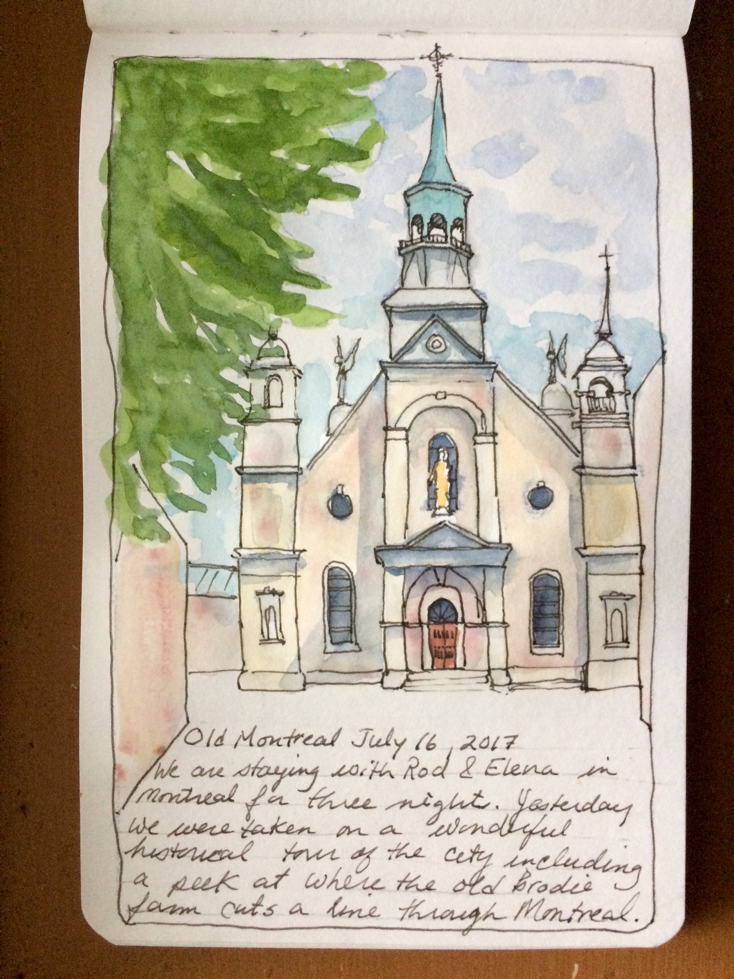 Old Montreal July 16, 2017
We are staying with Rod & Elena in
Montreal for three night. Yesterday
we were taken on a wonderful
historical tour of the city including
a peek at where the old Brodie
farm cuts a line through Montreal.